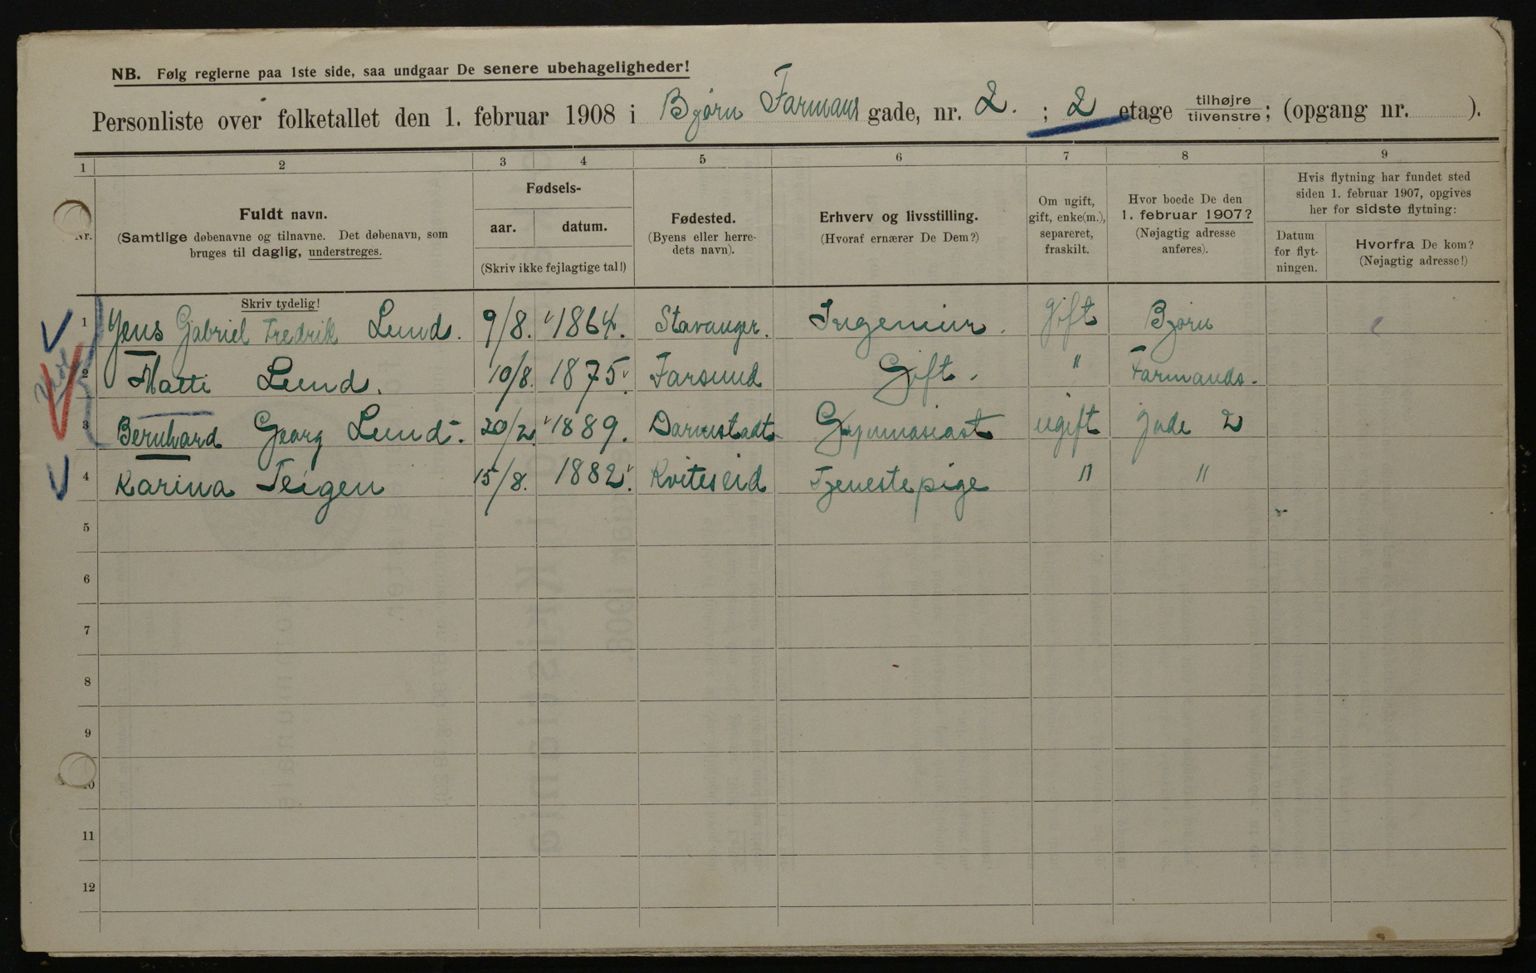 NB. Følg reglerne paa 1ste side, saa undgaar De senere ubehageligheder!
Personliste over folketallet den 1. februar 1908 i Bjørn Farmans gade, nr. 2. ; 2 etage tilhøjre tilvenstre ; (opgang nr. ).
1 2 3 4 5 6 7 8 9
Nr.
Fuldt navn.
(Samtlige døbenavne og tilnavne. Det døbenavn, som
bruges til daglig, understreges.
Skriv tydelig!
Fødsels-
aar. datum.
(Skriv ikke fejlagtige tal!)
Fødested.
(Byens eller herre-
dets navn).
Erhverv og livsstilling.
(Hvoraf ernærer De Dem?)
Om ugift,
gift, enke(m.),
separeret,
fraskilt.
Hvor boede De den
1. februar 1907?
(Nøjagtig adresse
anføres).
Hvis flytning har fundet sted
siden 1. februar 1907, opgives
her for sidste flytning:
Datum
for flyt-
ningen.
Hvorfra De kom?
(Nøjagtig adresse!)
1 Jens Gabriel Fredrik Lund. 9/8. 1864. Stavanger. Ingeniør. gift Bjørn
2 Thatti Lund. 10/8. 1875. Farsund Gift. " Farmands.
3 Bernhard Georg Lund. 20/2 1889. Darmstadt Gymnasiast ugift gade 2
4 Karina Teigen 15/8. 1882. Kviteseid Tjenestepige " "
5
6
7
8
9
10
11
12